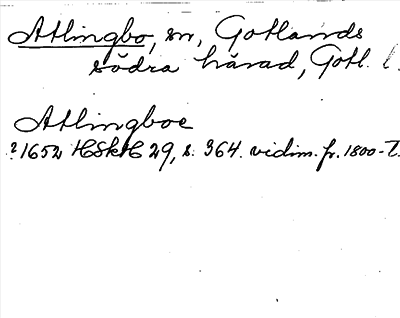 Atlingbo, sn, Gotlands
södra härad, Gotl. l.
Atlingboe
? 1652 HSkH 29, s. 364. vidim. fr. 1800-t.